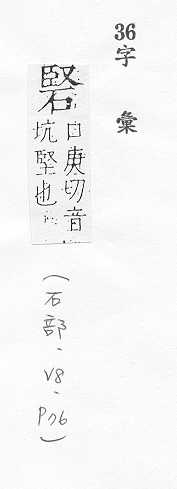 36字彙
硻
口庚切音
坑堅也
(石部、V8、P76)